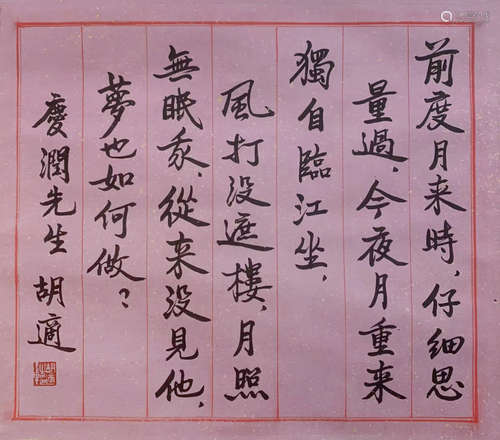 前度月来時,仔细思
量過,今夜月重来
獨自臨江坐,
風打没遮樓,月照
無眠我,從来没見他,
夢也如何做?
慶潤先生 胡適